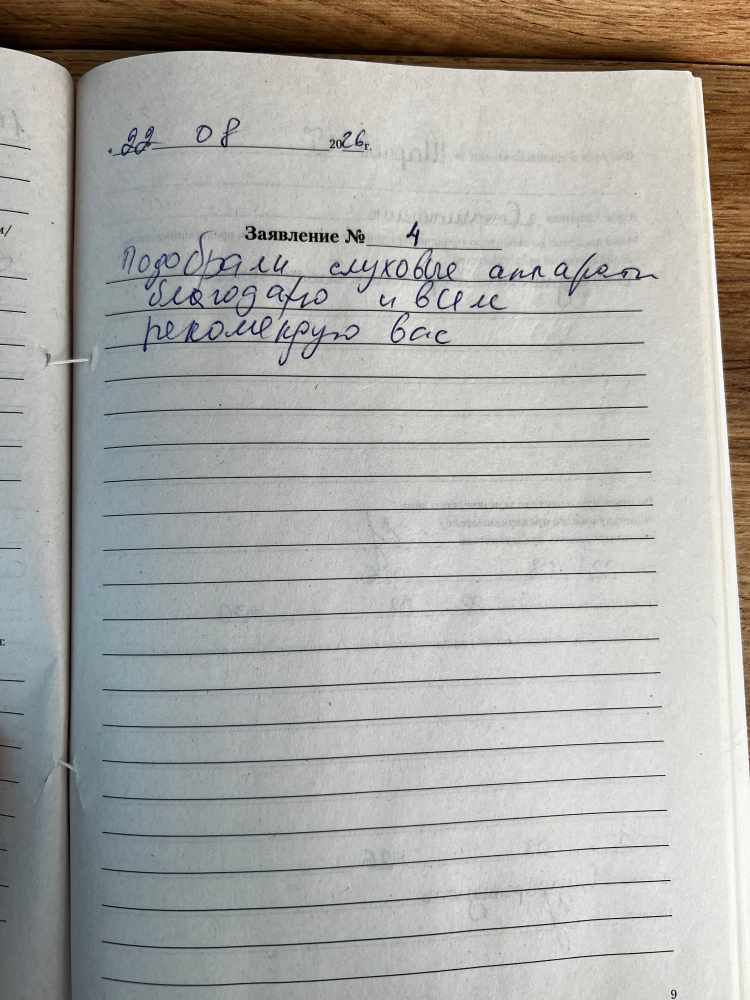 22 08 2026 г.
Заявление № 4
Подобрали слуховые аппараты
благодарю и всем
рекомендую вас
9